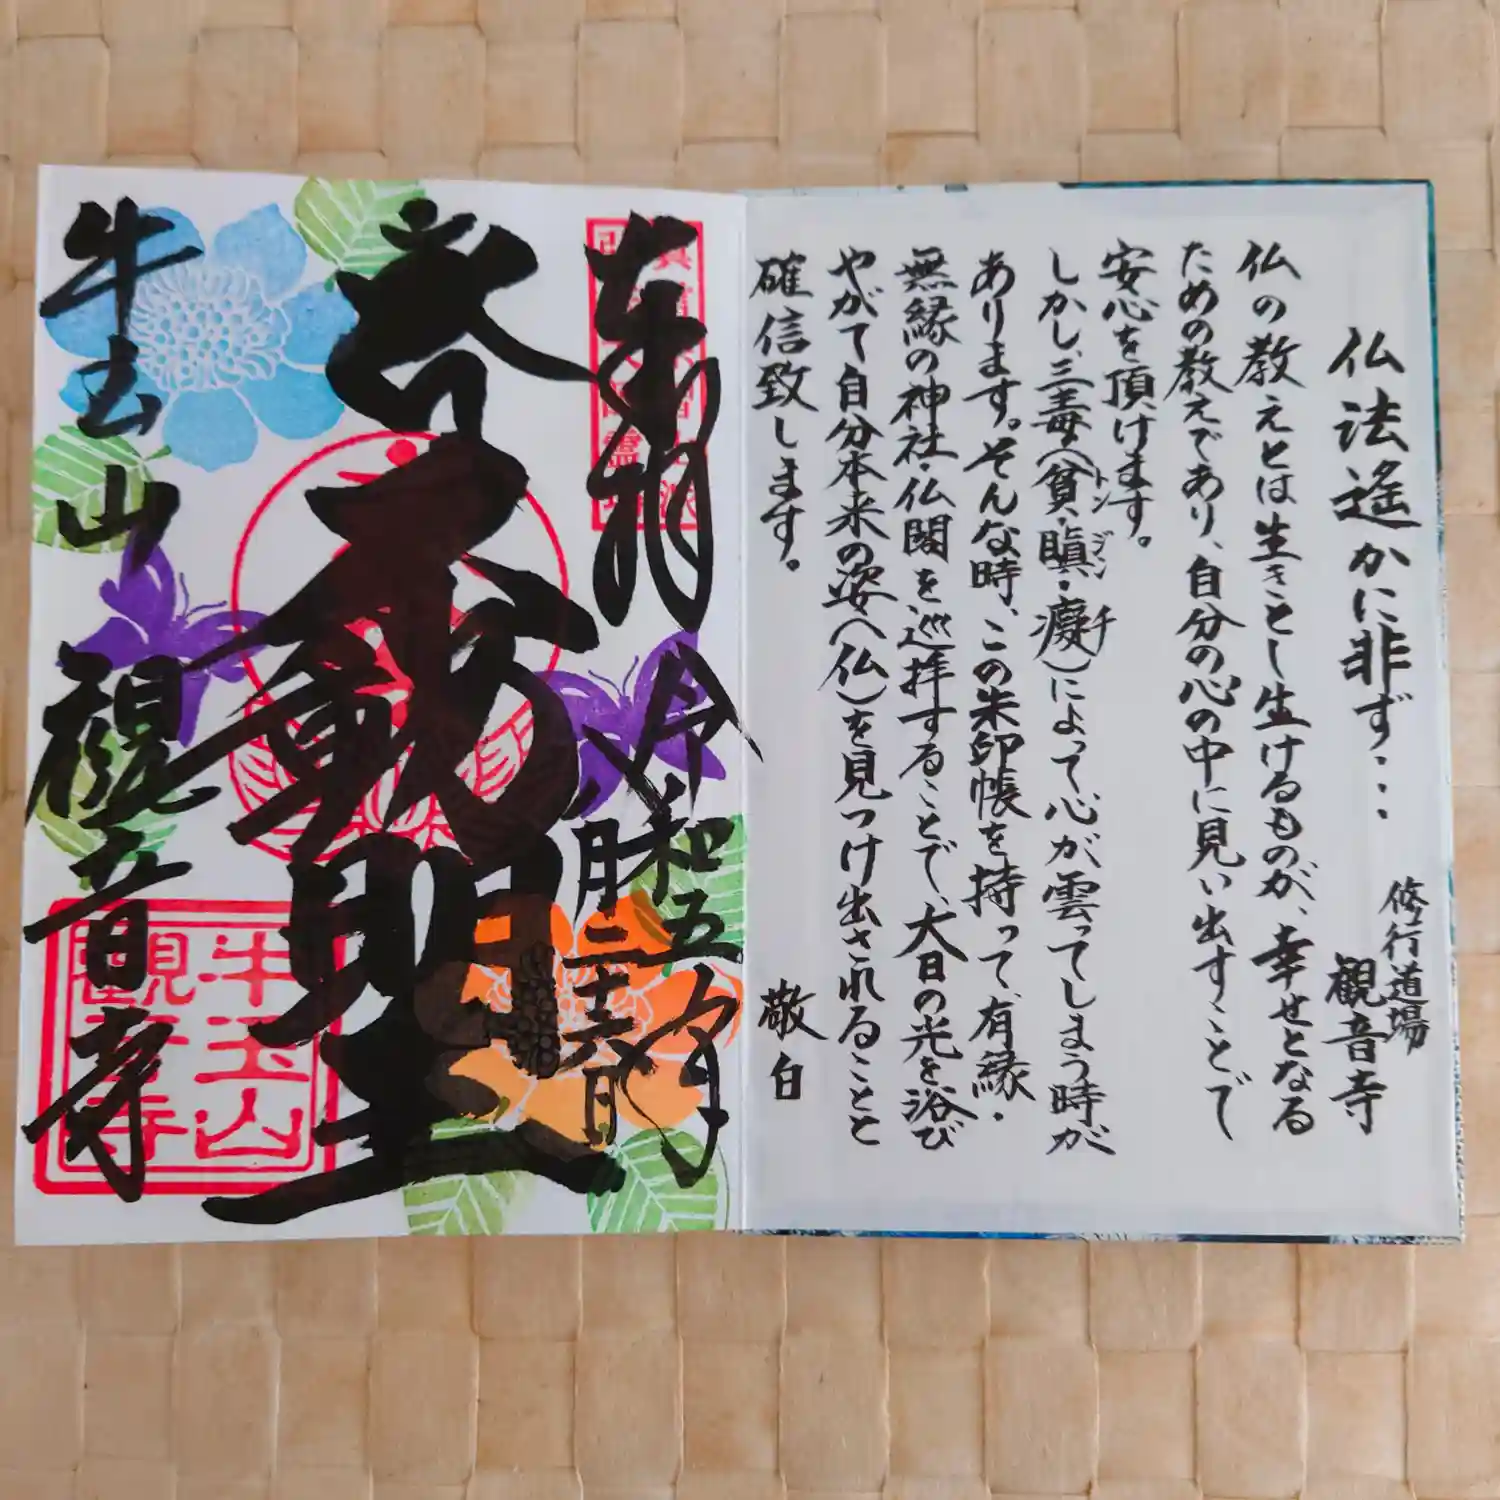 仏法遙かに非ず・・・
修行道場
観音寺
仏の教えとは生きとし生けるものが、幸せとなる
ための教えであり、自分の心の中に見い出すことで
安心を頂けます。
しかし、三毒(貧・瞋・癡)によって心が雲ってしまう時が
トン ジン チ
あります。そんな時、この朱印帳を持って、有縁・
無縁の神社・仏閣を巡拝することで、大日の光を浴び
やがて自分本来の姿(仏)を見つけ出されることと
確信致します。
敬白
奉拝
令和五年
八月二十六日
不動明王
牛玉山
観音寺
牛玉山
観音寺